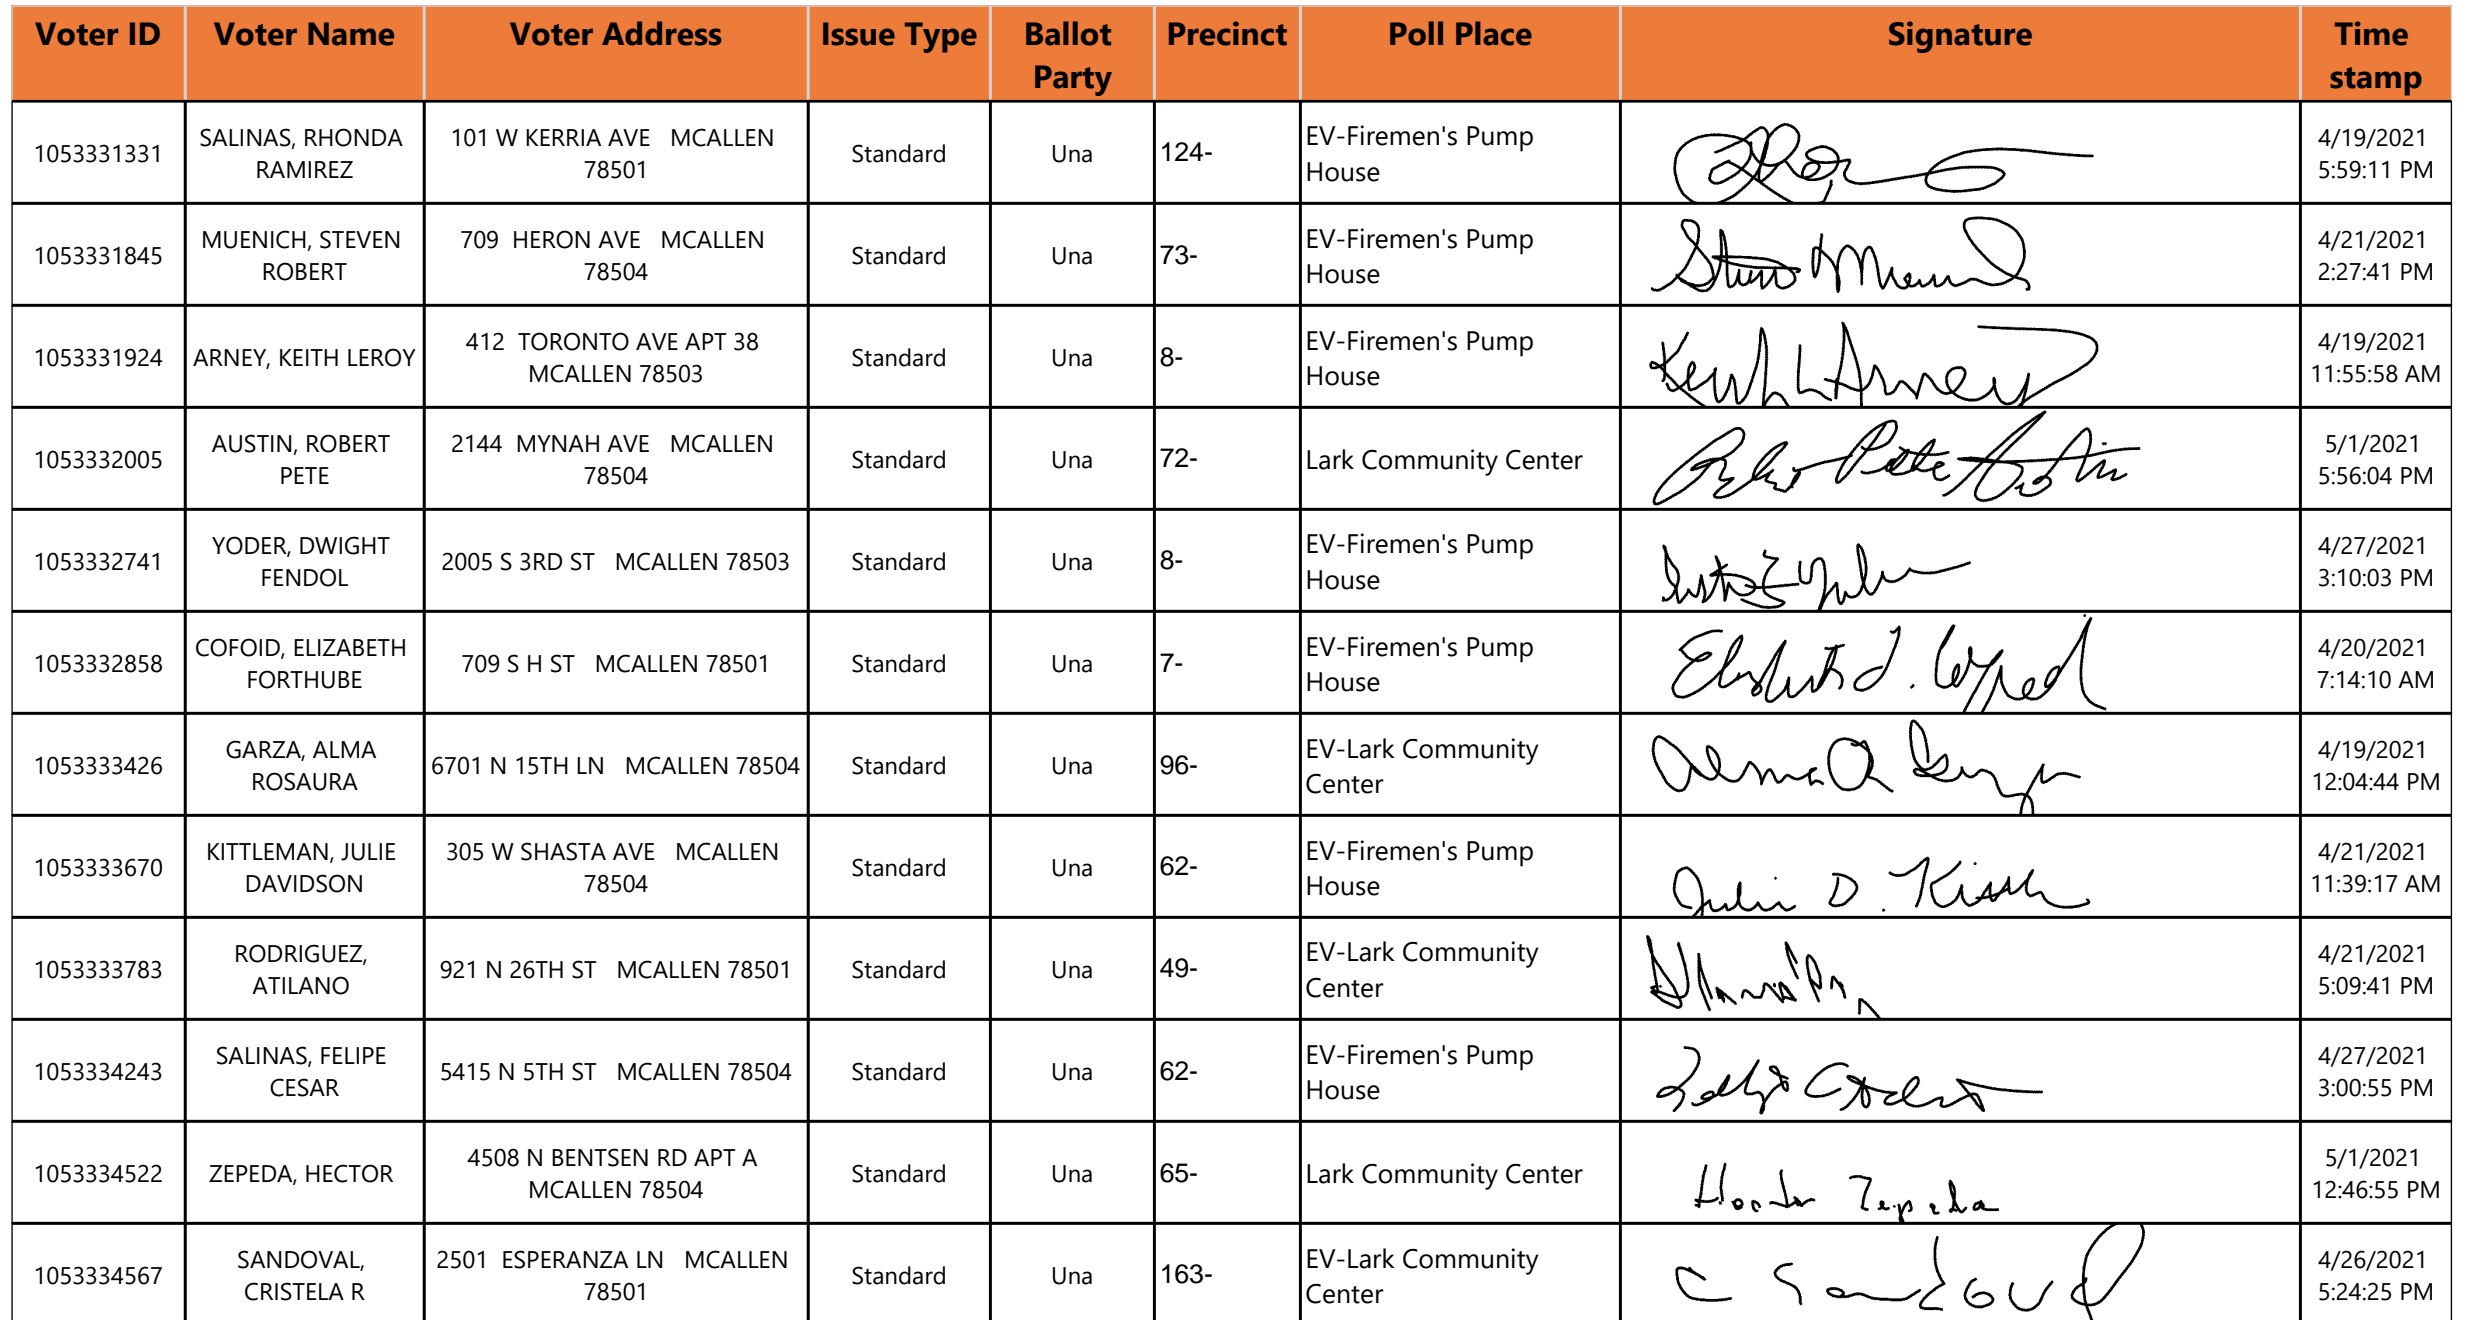 Voter ID Voter Name Voter Address Issue Type Ballot Party Precinct Poll Place Signature Time stamp
1053331331 SALINAS, RHONDA RAMIREZ 101 W KERRIA AVE MCALLEN 78501 Standard Una 124- EV-Firemen's Pump House 4/19/2021 5:59:11 PM
1053331845 MUENICH, STEVEN ROBERT 709 HERON AVE MCALLEN 78504 Standard Una 73- EV-Firemen's Pump House 4/21/2021 2:27:41 PM
1053331924 ARNEY, KEITH LEROY 412 TORONTO AVE APT 38 MCALLEN 78503 Standard Una 8- EV-Firemen's Pump House Keith L Arney 4/19/2021 11:55:58 AM
1053332005 AUSTIN, ROBERT PETE 2144 MYNAH AVE MCALLEN 78504 Standard Una 72- Lark Community Center Pete Austin 5/1/2021 5:56:04 PM
1053332741 YODER, DWIGHT FENDOL 2005 S 3RD ST MCALLEN 78503 Standard Una 8- EV-Firemen's Pump House 4/27/2021 3:10:03 PM
1053332858 COFOID, ELIZABETH FORTHUBE 709 S H ST MCALLEN 78501 Standard Una 7- EV-Firemen's Pump House 4/20/2021 7:14:10 AM
1053333426 GARZA, ALMA ROSAURA 6701 N 15TH LN MCALLEN 78504 Standard Una 96- EV-Lark Community Center Alma 4/19/2021 12:04:44 PM
1053333670 KITTLEMAN, JULIE DAVIDSON 305 W SHASTA AVE MCALLEN 78504 Standard Una 62- EV-Firemen's Pump House Julie D. 4/21/2021 11:39:17 AM
1053333783 RODRIGUEZ, ATILANO 921 N 26TH ST MCALLEN 78501 Standard Una 49- EV-Lark Community Center 4/21/2021 5:09:41 PM
1053334243 SALINAS, FELIPE CESAR 5415 N 5TH ST MCALLEN 78504 Standard Una 62- EV-Firemen's Pump House 4/27/2021 3:00:55 PM
1053334522 ZEPEDA, HECTOR 4508 N BENTSEN RD APT A MCALLEN 78504 Standard Una 65- Lark Community Center Hector Zepeda 5/1/2021 12:46:55 PM
1053334567 SANDOVAL, CRISTELA R 2501 ESPERANZA LN MCALLEN 78501 Standard Una 163- EV-Lark Community Center C Sandoval 4/26/2021 5:24:25 PM